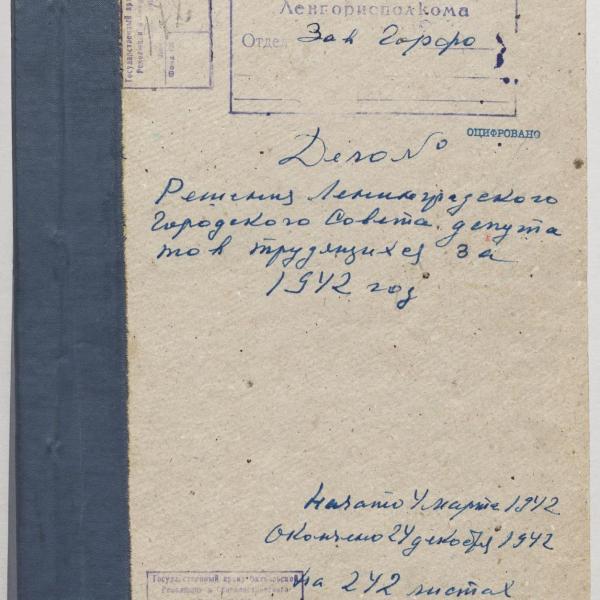 Государственный арх
Революции и
Фонд
Ленгорисполкома
Отдел Зав Горфо
ОЦИФРОВАНО
Дело №
Решения Ленинградского
Городского Совета депута
тов трудящихся за
1942 год
Начато 4 марта 1942
Окончено 24 декабря 1942
на 242 листах
Государственный архив Октябрьской
Революции и Социалистического